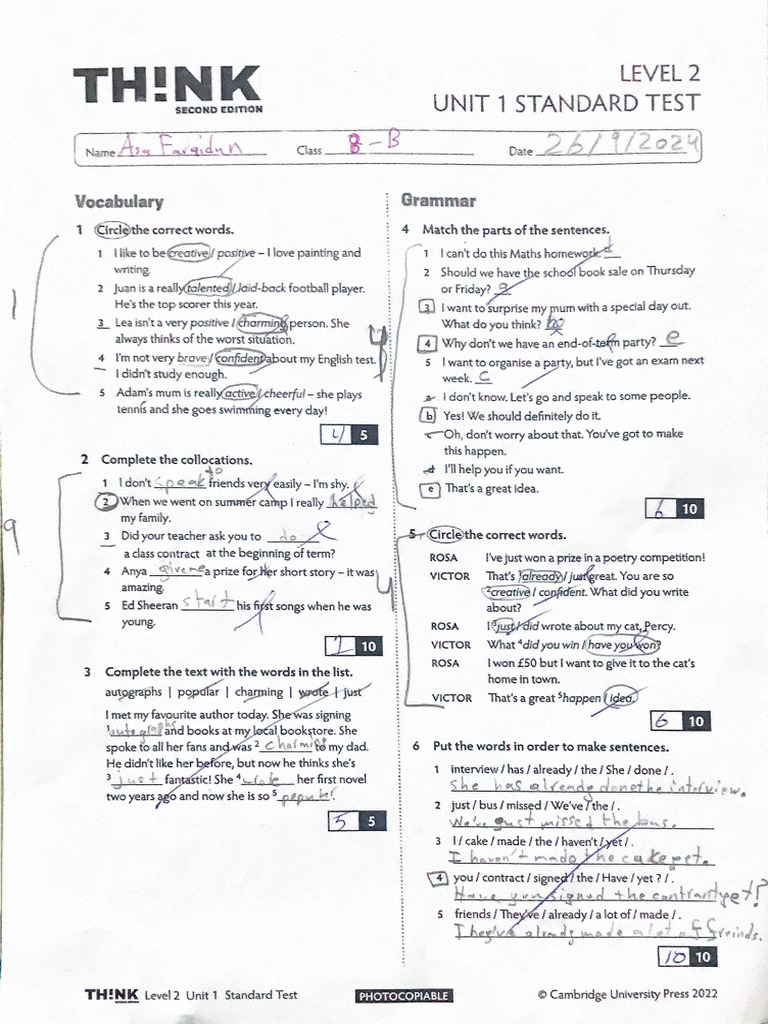 TH!NK
SECOND EDITION
LEVEL 2
UNIT 1 STANDARD TEST
Name Asa Faraidun Class 8-B Date 26/9/2024
Vocabulary
1 Circle the correct words.
1 I like to be creative / positive – I love painting and
writing.
2 Juan is a really talented / laid-back football player.
He's the top scorer this year.
3 Lea isn't a very positive / charming person. She
always thinks of the worst situation.
4 I'm not very brave / confident about my English test.
I didn't study enough.
5 Adam's mum is really active / cheerful – she plays
tennis and she goes swimming every day!
4 5
2 Complete the collocations.
1 I don't speak to friends very easily – I'm shy.
2 When we went on summer camp I really helped
my family.
3 Did your teacher ask you to do
a class contract at the beginning of term?
4 Anya giveme a prize for her short story – it was
amazing.
5 Ed Sheeran start his first songs when he was
young.
10
3 Complete the text with the words in the list.
autographs | popular | charming | wrote | just
I met my favourite author today. She was signing
1 autographs and books at my local bookstore. She
spoke to all her fans and was 2 charming to my dad.
He didn't like her before, but now he thinks she's
3 just fantastic! She 4 wrote her first novel
two years ago and now she is so 5 populer.
5 5
Grammar
4 Match the parts of the sentences.
1 I can't do this Maths homework. d
2 Should we have the school book sale on Thursday
or Friday? a
3 I want to surprise my mum with a special day out.
What do you think? b
4 Why don't we have an end-of-term party? e
5 I want to organise a party, but I've got an exam next
week. c
a I don't know. Let's go and speak to some people.
b Yes! We should definitely do it.
c Oh, don't worry about that. You've got to make
this happen.
d I'll help you if you want.
e That's a great idea.
6 10
5 Circle the correct words.
ROSA I've just won a prize in a poetry competition!
VICTOR That's 1 already / just great. You are so
2 creative / confident. What did you write
about?
ROSA I 3 just / did wrote about my cat, Percy.
VICTOR What 4 did you win / have you won?
ROSA I won £50 but I want to give it to the cat's
home in town.
VICTOR That's a great 5 happen / idea.
6 10
6 Put the words in order to make sentences.
1 interview / has / already / the / She / done / .
She has already done the interview.
2 just / bus / missed / We've / the / .
We've just missed the bus.
3 I / cake / made / the / haven't / yet / .
I haven't made the cake yet.
4 you / contract / signed / the / Have / yet ? / .
Have you signed the contract yet?
5 friends / They've / already / a lot of / made / .
They've already made a lot of freinds.
10 10
TH!NK Level 2 Unit 1 Standard Test
PHOTOCOPIABLE
© Cambridge University Press 2022